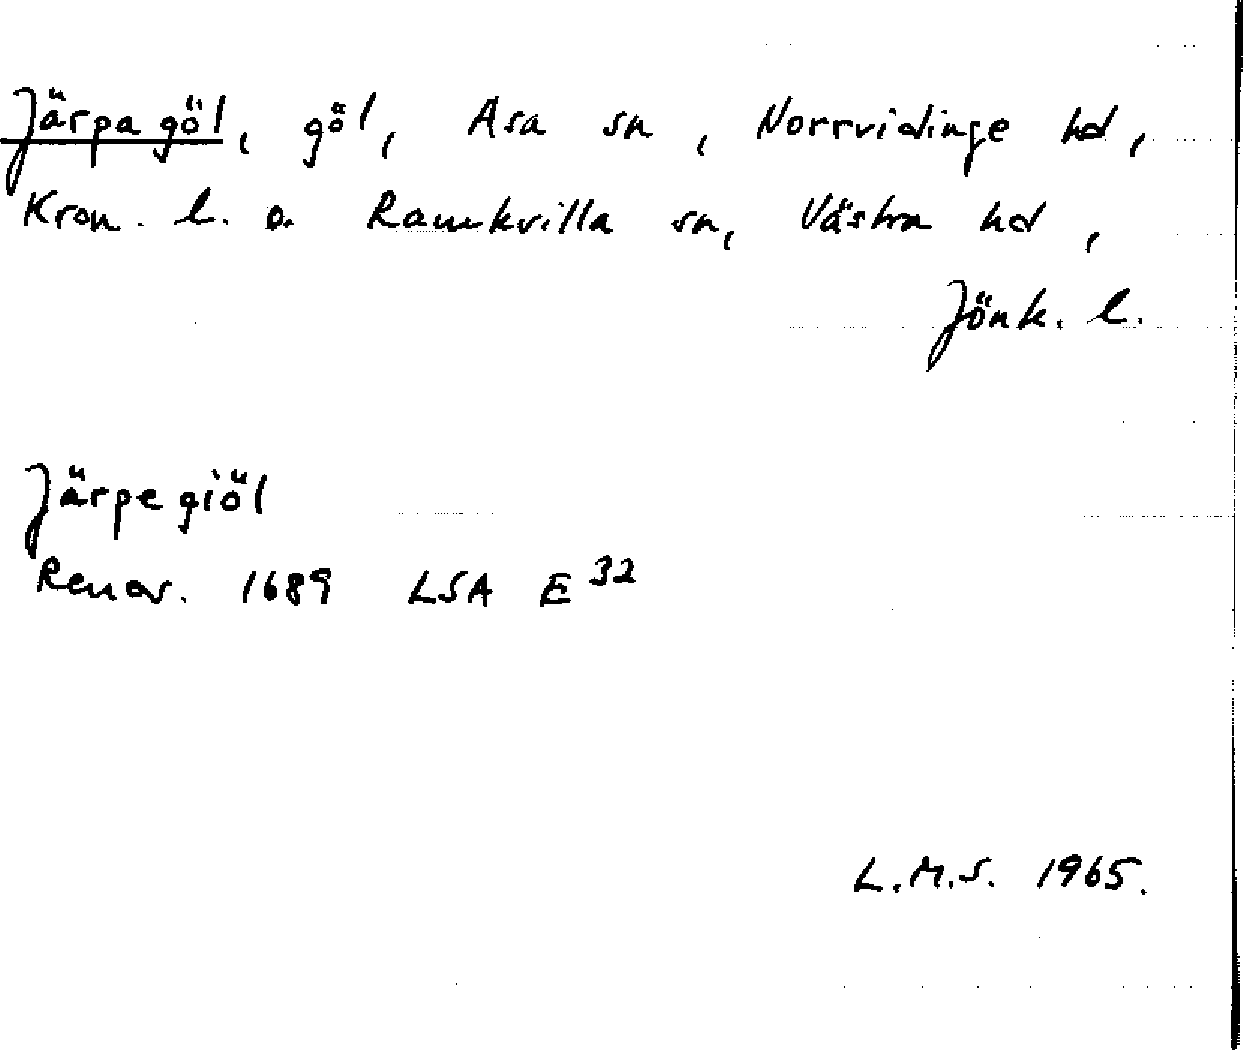 Järpagöl, göl, Asa sn, Norrvidinge hd,
Kron. l. o. Ramkvilla sn, Västra hd,
Jönk. l.
Järpegiöl
Renov. 1689 LSA E 32
L.M.S. 1965.